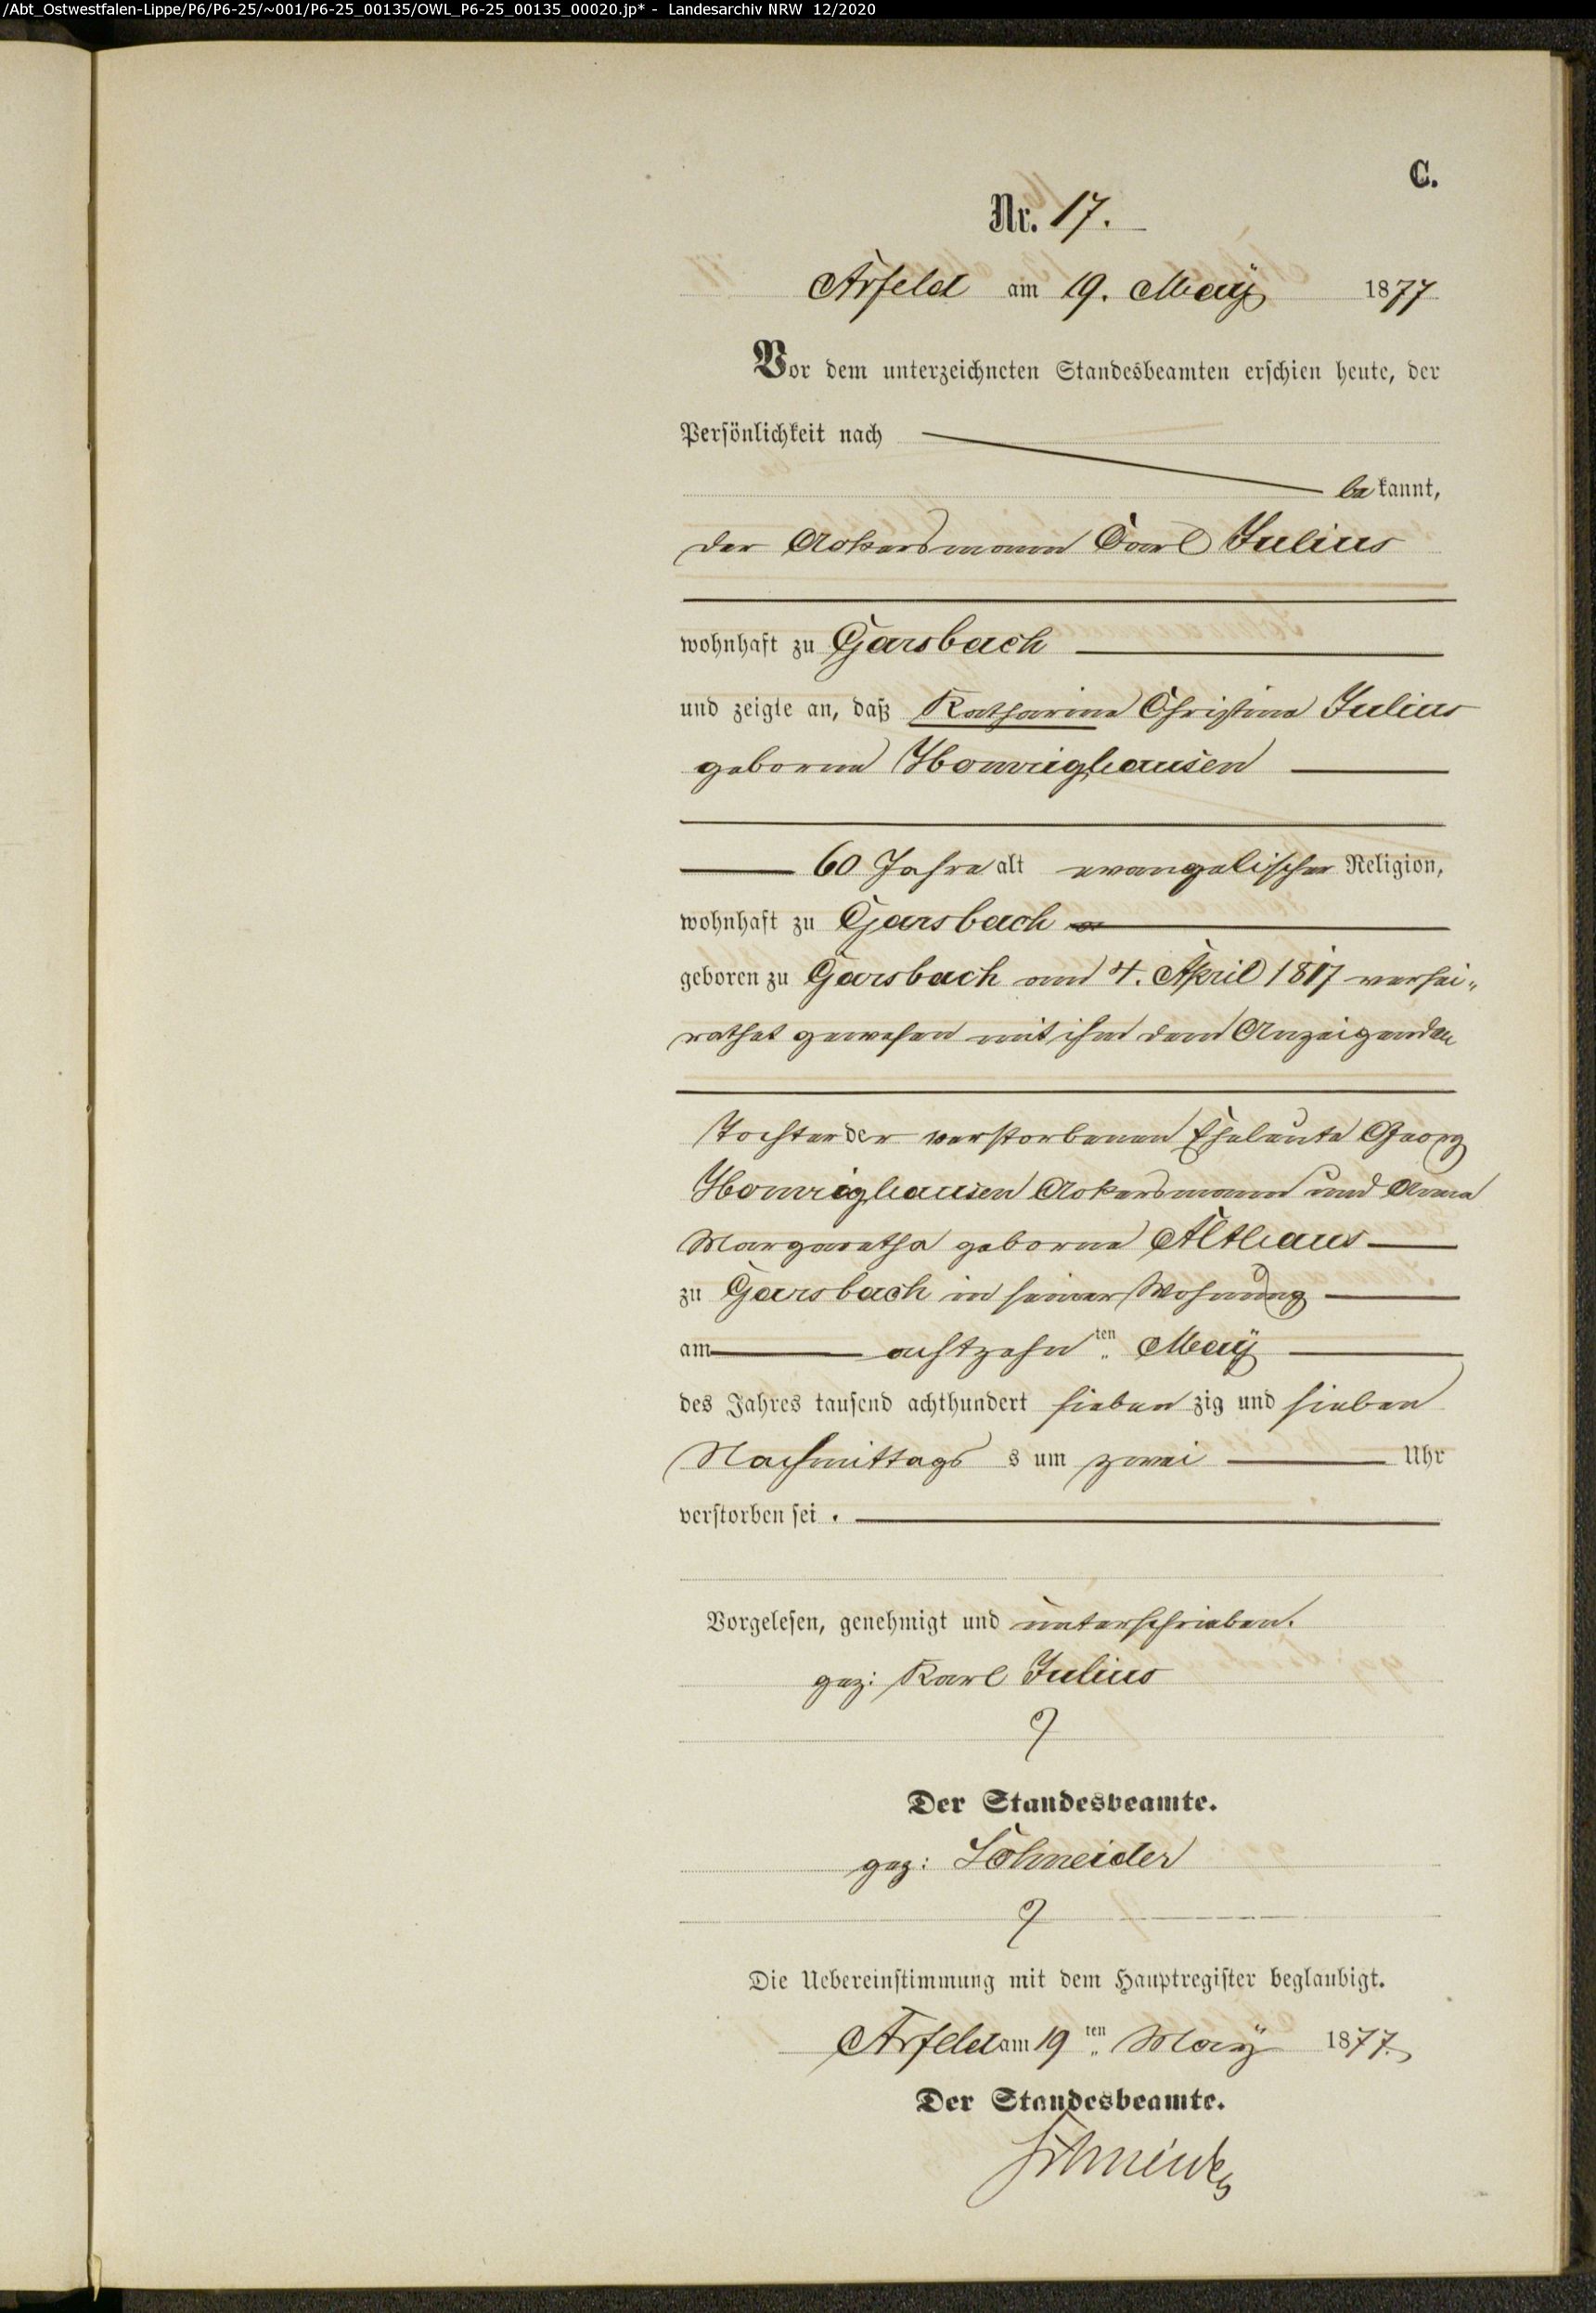 /Abt_Ostwestfalen-Lippe/P6/P6-25/~001/P6-25_00135/OWL_P6-25_00135_00020.jp* - Landesarchiv NRW 12/2020
C.
Nr. 17.
Arfeld am 19. Maÿ 1877
Vor dem unterzeichneten Standesbeamten erschien heute, der
Persönlichkeit nach
be kannt,
der Ackersmann Carl Julius
wohnhaft zu Garsbach
und zeigte an, daß Katharina Christina Julius
geborne Honrighausen
60 Jahre alt evangelischer Religion,
wohnhaft zu Garsbach
geboren zu Garsbach am 4. April 1817 verhei„
rathet gewesen mit ihm dem Anzeigenden
Tochter der verstorbenen Eheleute Georg
Honrighausen Ackersmann und Anna
Margaretha geborne Althaus
zu Garsbach in seiner Wohnung
am achtzehn ten Maÿ
des Jahres tausend achthundert sieben zig und sieben
Nachmittags s um zwei Uhr
verstorben sei .
Vorgelesen, genehmigt und unterschrieben.
gez: Karl Julius
Der Standesbeamte.
gez: Schneider
Die Uebereinstimmung mit dem Hauptregister beglaubigt.
Arfeld am 19 ten Maÿ 1877.
Der Standesbeamte.
Schneider